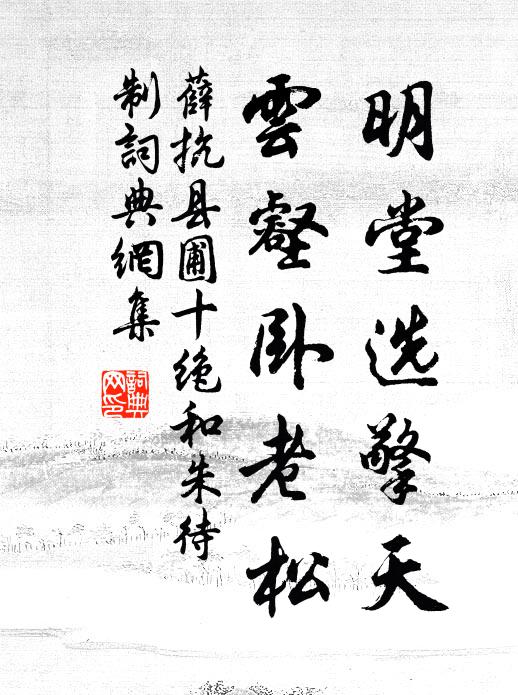 明堂选擎天
雲壑卧老松
薛抗县圃十绝和朱待
制詞典網集
詞典网印